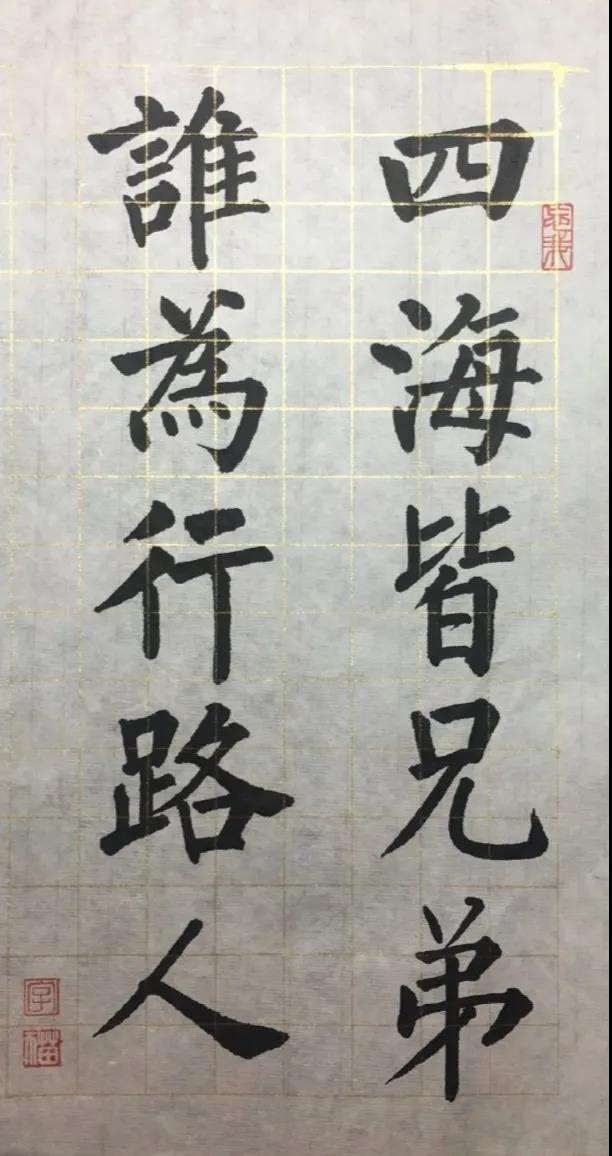 四海皆兄弟
誰為行路人